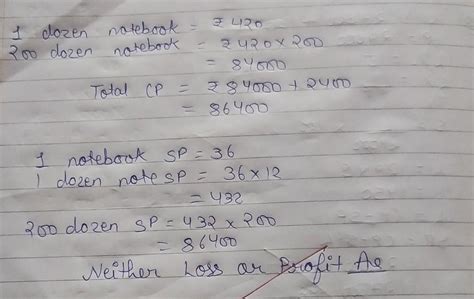 1 dozen notebook = ₹420
200 dozen notebook = ₹420×200
= 84000
Total CP = ₹84000 + 2400
= 86400
1 notebook SP = 36
1 dozen note SP = 36×12
= 432
200 dozen SP = 432×200
= 86400
Neither Loss or Profit